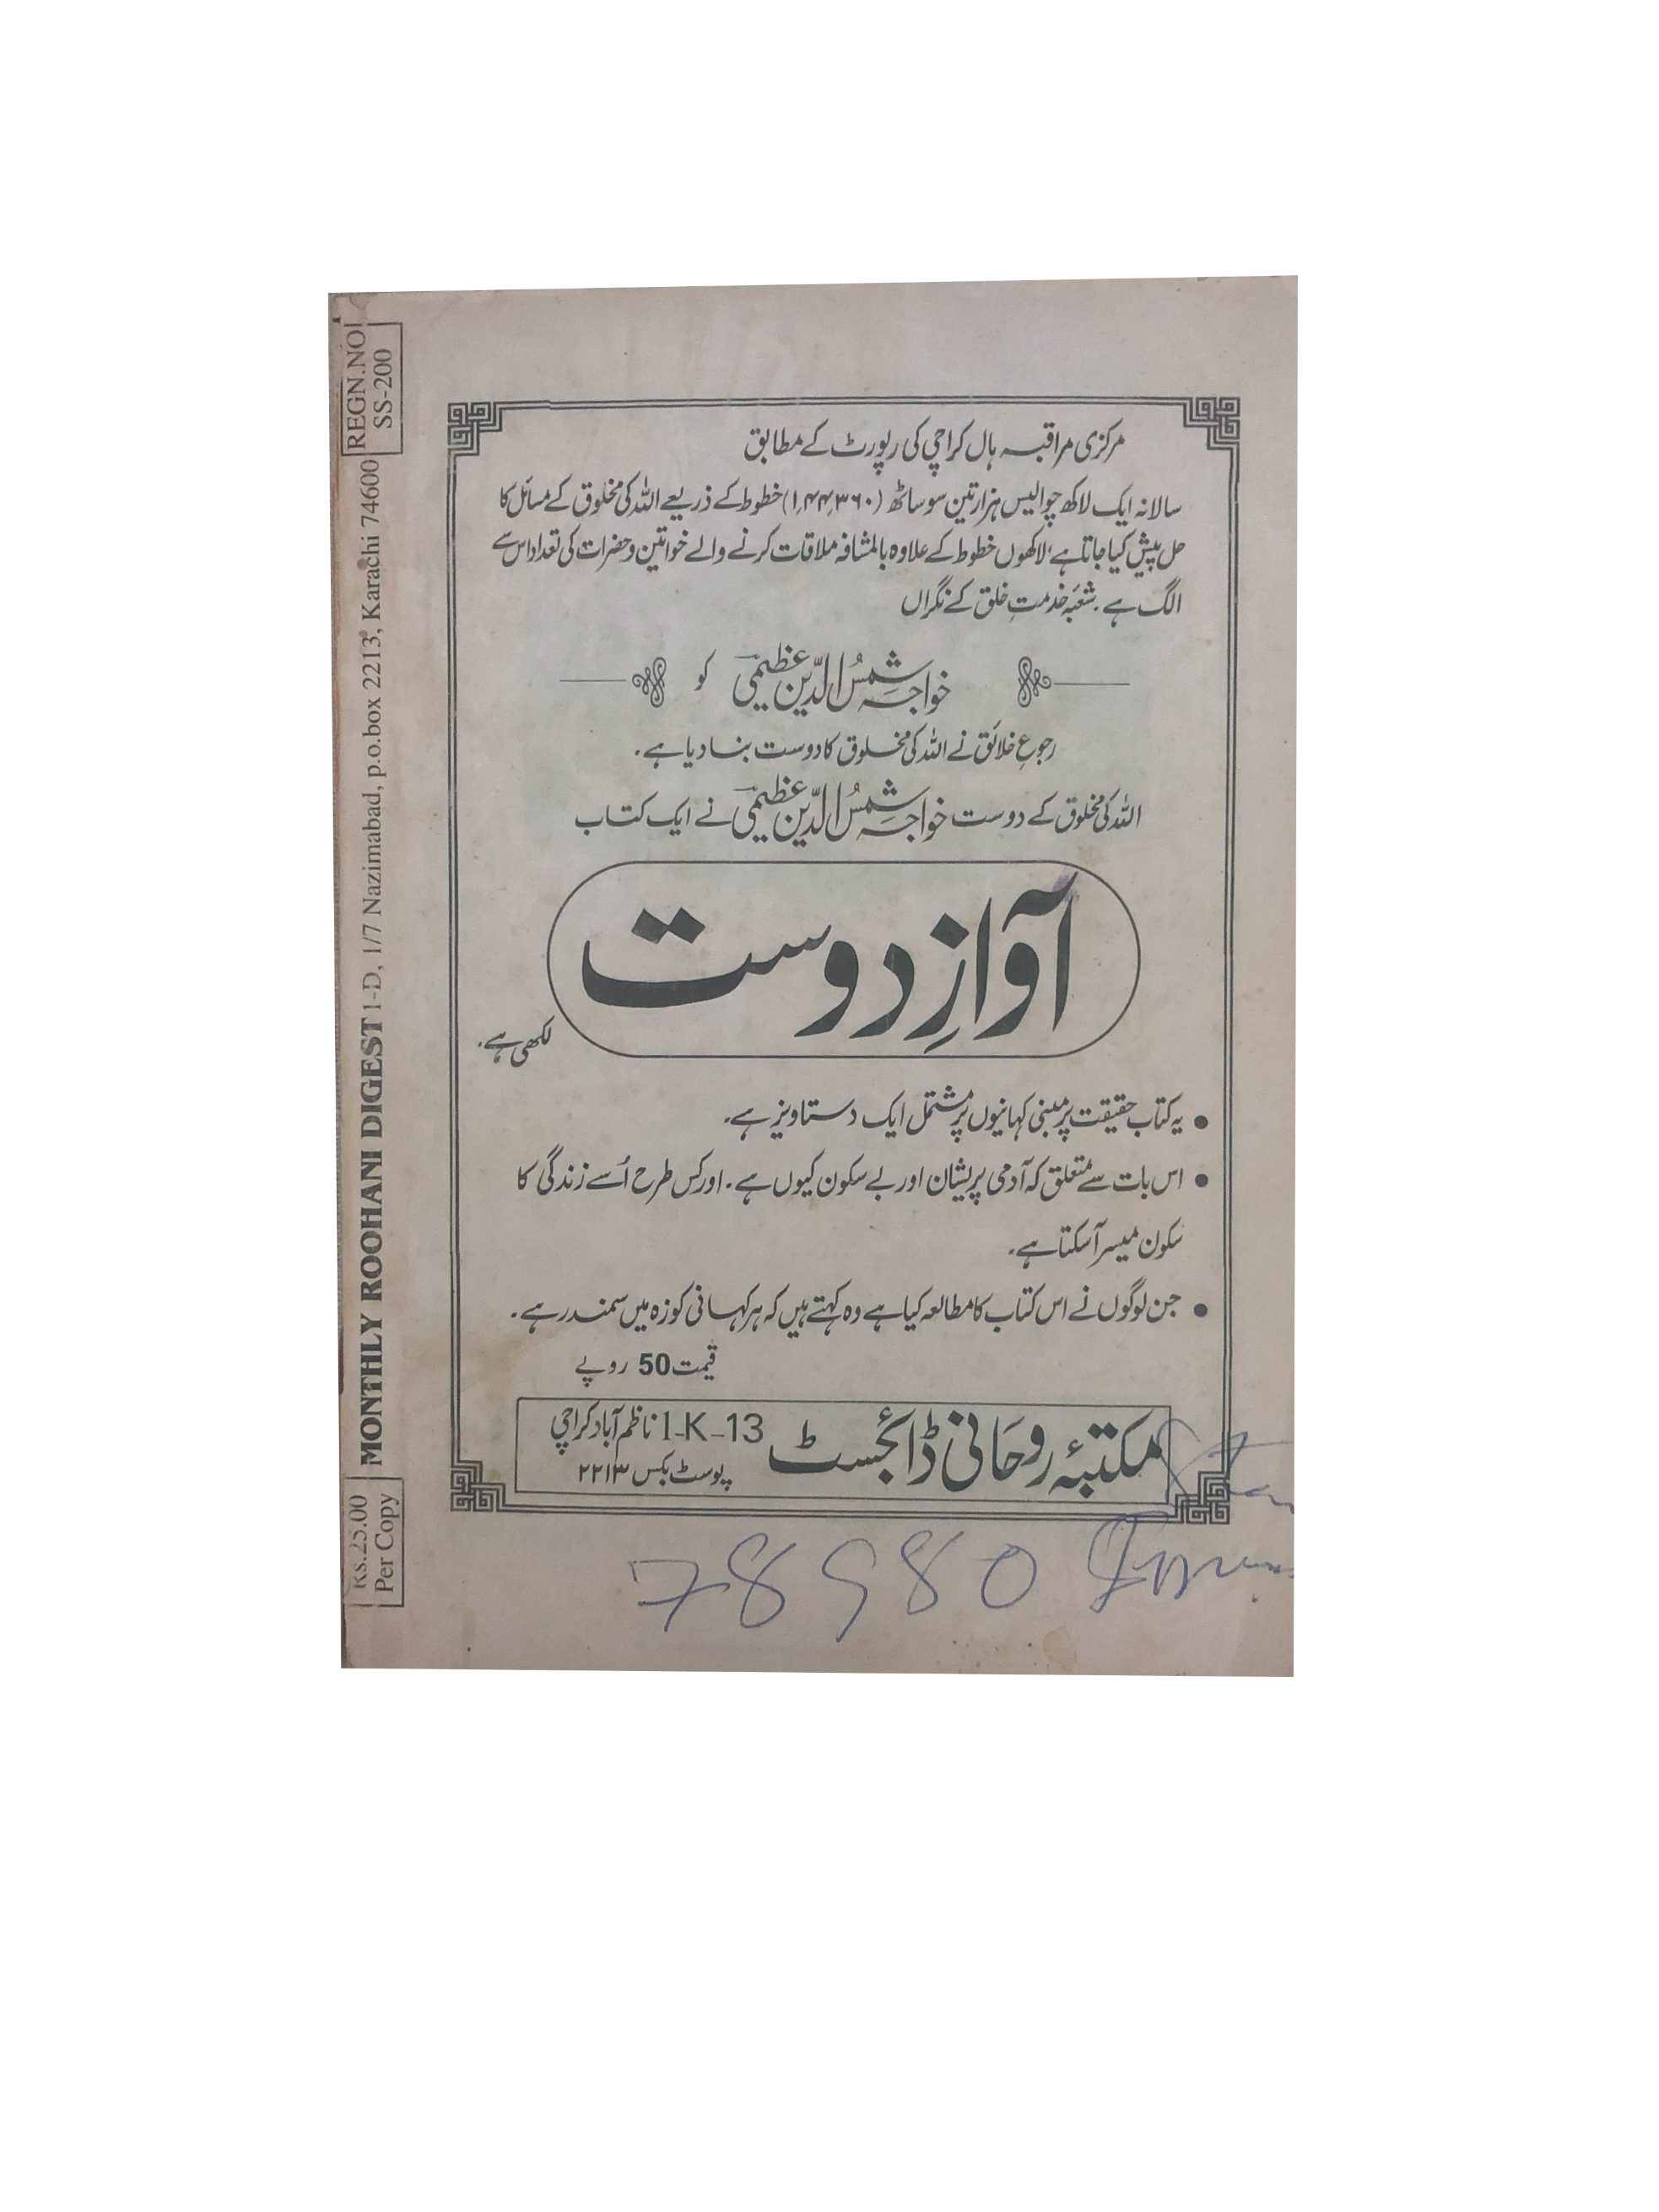 مرکزی مراقبہ ہال کراچی کی رپورٹ کے مطابق
سالانہ ایک لاکھ چوالیس ہزار تین سو ساٹھ (۱٫۴۴٫۳۶۰) خطوط کے ذریعے اللہ کی مخلوق کے مسائل کا
حل پیش کیا جاتا ہے، لاکھوں خطوط کے علاوہ بالمشافہ ملاقات کرنے والے خواتین و حضرات کی تعداد اس سے
الگ ہے۔ شعبۂ خدمتِ خلق کے نگراں
خواجہ شمسُ الدّین عظیمی کو
رجوعِ خلائق نے اللہ کی مخلوق کا دوست بنا دیا ہے۔
اللہ کی مخلوق کے دوست خواجہ شمسُ الدّین عظیمی نے ایک کتاب
آوازِ دوست
لکھی ہے۔
• یہ کتاب حقیقت پر مبنی کہانیوں پر مشتمل ایک دستاویز ہے۔
• اس بات سے متعلق کہ آدمی پریشان اور بے سکون کیوں ہے۔ اور کس طرح اُسے زندگی کا
سکون میسر آسکتا ہے۔
• جن لوگوں نے اس کتاب کا مطالعہ کیا ہے وہ کہتے ہیں کہ ہر کہانی کوزہ میں سمندر ہے۔
قیمت 50 روپے
مکتبۂ روحانی ڈائجسٹ
1-K-13 ناظم آباد کراچی
پوسٹ بکس ۲۲۱۳
REGN.NO
SS-200
MONTHLY ROOHANI DIGEST 1-D, 1/7 Nazimabad, p.o.box 2213, Karachi 74600
Rs.25.00
Per Copy